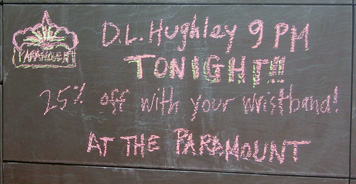 PARAMOUNT
D.L. Hughley 9 PM
TONIGHT!!
25% off with your wristband!
AT THE PARAMOUNT